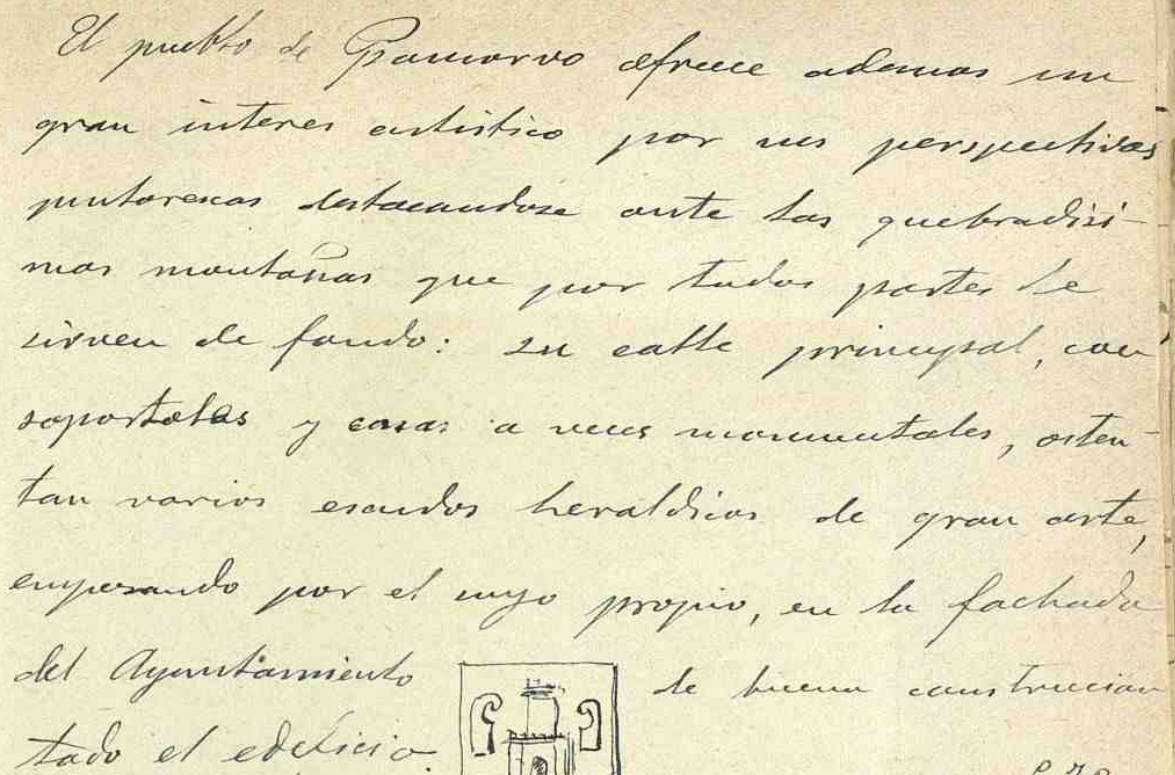 El pueblo de Pancorvo ofrece ademas un
gran interes artistico por sus perspectivas
pintorescas destacandose ante las quebradisi-
mas montañas que por todas partes le
sirven de fondo: su calle principal, con
soportales y casas a veces monumentales, osten-
tan varios escudos heraldicos de gran arte,
empezando por el suyo propio, en la fachada
del Ayuntamiento de buena construccion
todo el edificio.